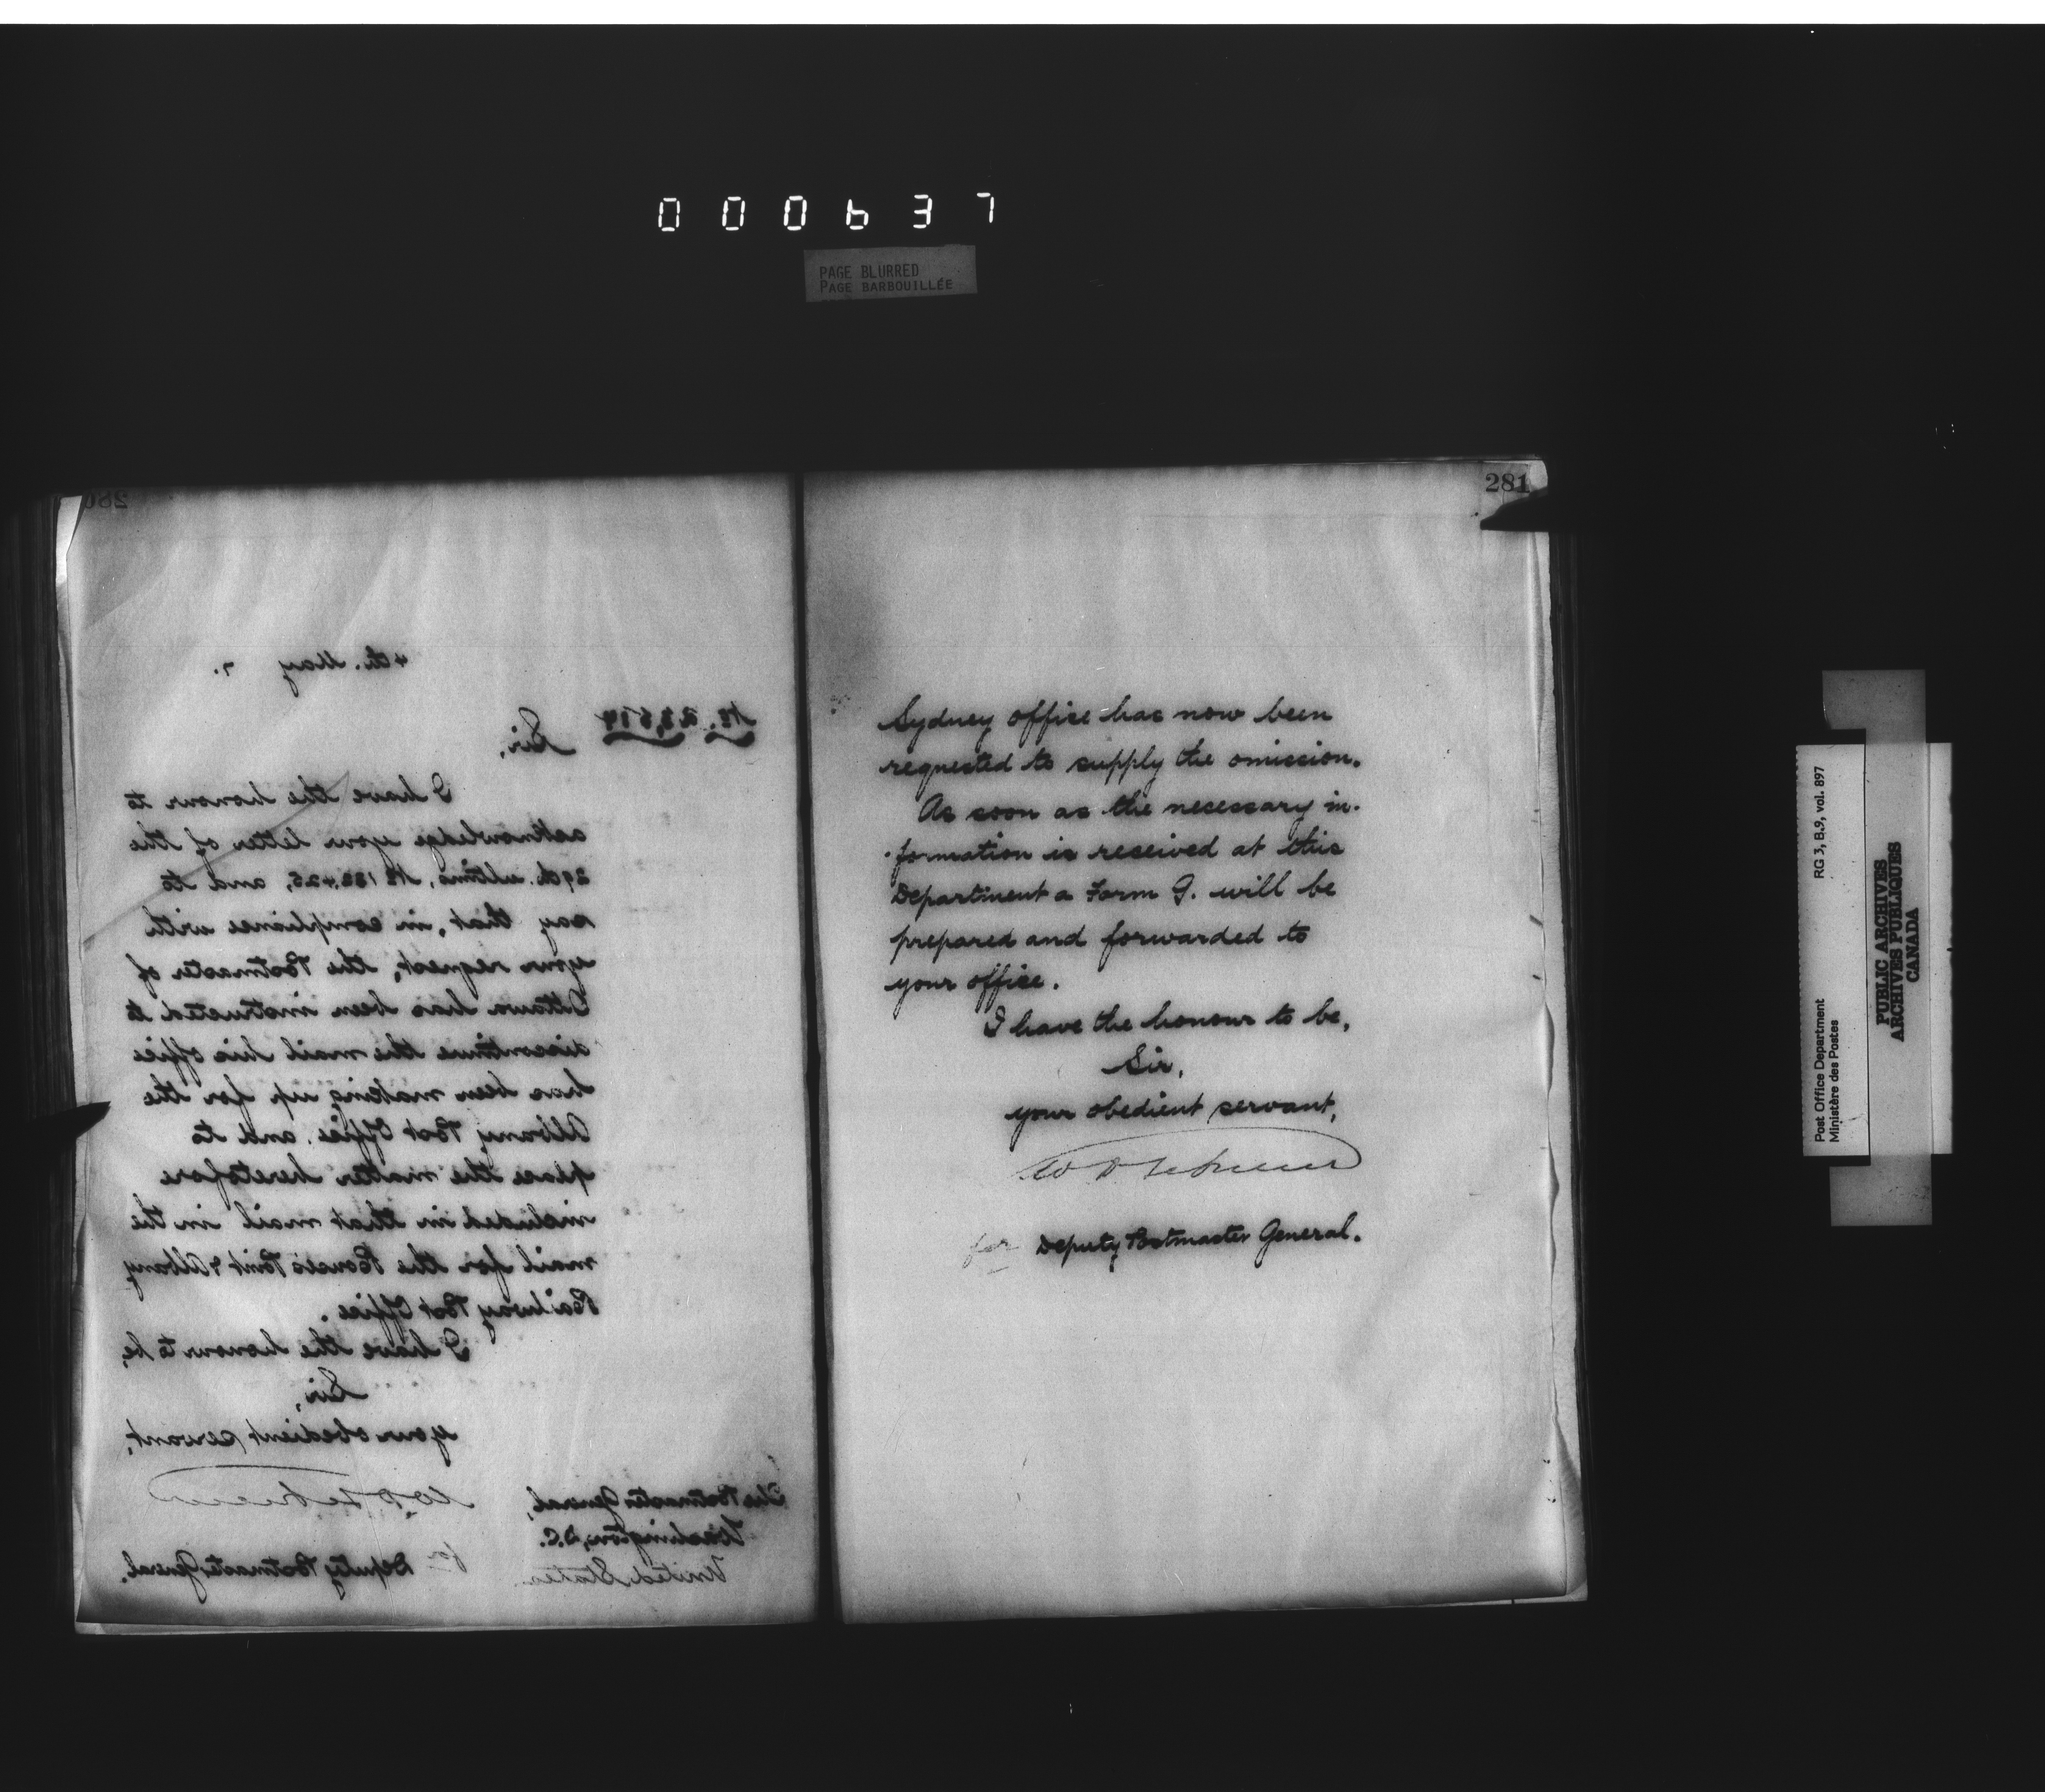 000637
PAGE BLURRED
PAGE BARBOUILLÉE
280
4th. May 7.
No. 23,514
Sir,
I have the honour to
acknowledge your letter of the
29th. ultimo, No 188,425, and to
say that, in compliance with
your request, the Postmaster of
Ottawa has been instructed to
discontinue the mail his office
has been making up for the
Albany Post Office and to
place the matter heretofore
included in that mail in the
mail for the Rouses Point & Albany
Railway Post Office.
I have the honour to be,
Sir,
your obedient servant,
for Deputy Postmaster General.
The Postmaster General,
Washington, D.C.
United States
281
Sydney office has now been
requested to supply the omission.
As soon as the necessary in-
formation is received at this
Department a Form G. will be
prepared and forwarded to
your office.
I have the honour to be,
Sir,
your obedient servant,
for Deputy Postmaster General.
Post Office Department
Ministère des Postes
RG 3, B.9, vol. 897
PUBLIC ARCHIVES
ARCHIVES PUBLIQUES
CANADA